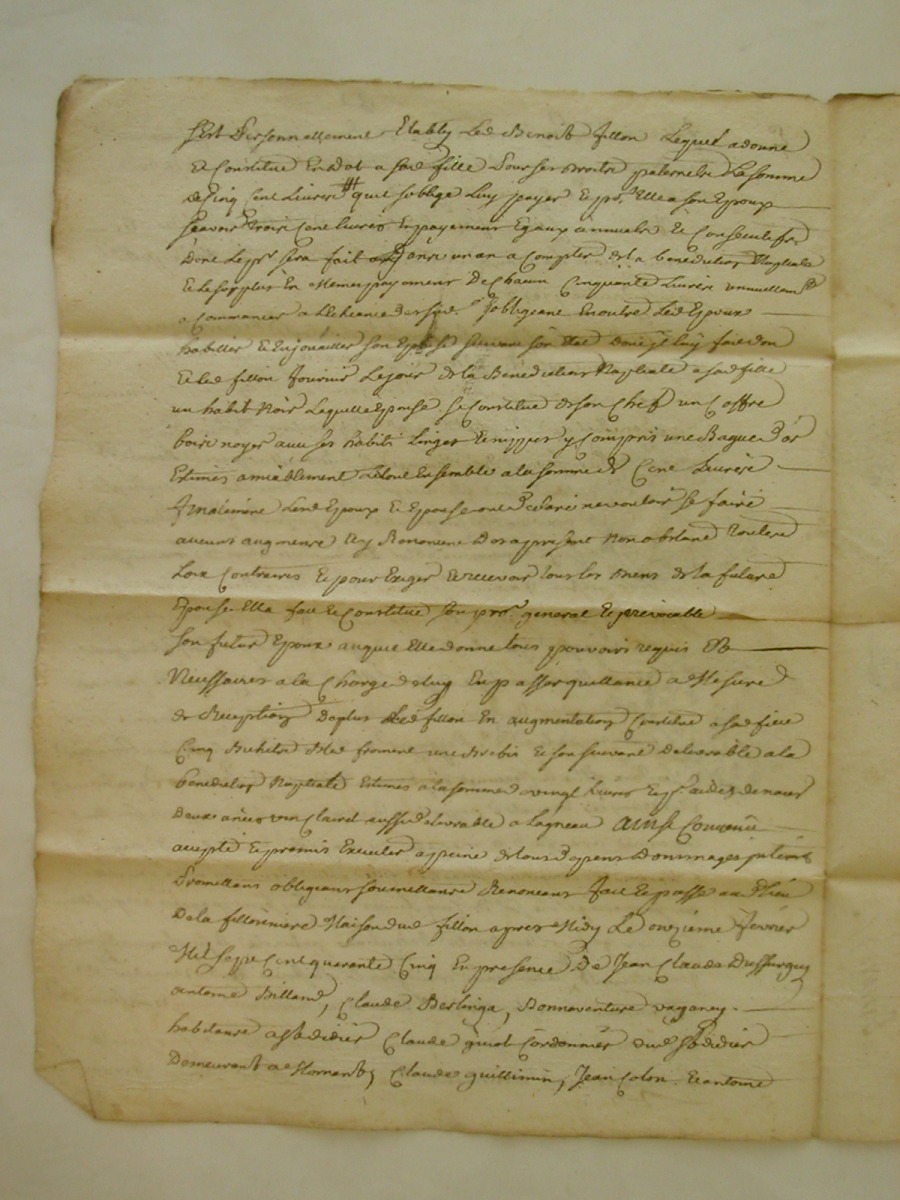 s'Est Personnellement Etably Led Benoist fillon Lequel a donné
Et Constitué En dot a sad fille Pour ses droits paternels La somme
de Cinq Cent Livres qu'il s'oblige Luy payer Et pr Elle a son Epoux
scavoir trois Cent livres En payements Egaux annuels Et Consecutifs
Dont Le pr sera fait dans un an a Compter de la benediction Nuptiale
Et Le surplus En Memes payements De Chacun Cinquante Livres annuellemt
a Commancer a L'echeance des sud. s'obligeant En outre Led Epoux
habiller Et Enjouailler son Epouse suivant son Etat dont jl luy fait don
Et led fillon fournir Le jour de la Benediction Nuptiale a sad fille
un habit Noir Laquelle Epouse se Constitue de son Chef un Coffre
bois noyer avec ses habits Linges Et nippes y Compris une Bague d'or
Estimés amiablement Le tout Ensemble a la somme de Cent Livres
finalement Lesd Epoux Et Epouse ont declaré ne vouloir se faire
aucuns augments Et y Renoncent Des a present Non obstant toutes
Loix Contraires Et pour Exiger Et recevoir tous les biens de la future
Epouse Elle fait Et Constitue son pro general Et jrrevocable
son futur Epoux auquel Elle donne tous pouvoirs requis Et
Necessaires a la Charge de luy En passer quittance a Mesure
de Reception De plus Led fillon En augmentation Constitue a sad fille
Cinq Bichets Bled froment une Brebis Et son suivant delivrable a la
benediction Nuptiale Estimés a la somme de vingt Livres
Deux anées vin Clairet aussi delivrable a Lagneau Ainsi Convenu
accepté Et promis Executer a peine de tous depens Dommages jnterets
Promettans obligeans soumettans Renonceans fait Et passé au Lieu
De la fillonniere Maison dud fillon apres Midy Le onzieme fevrier
Mil sept Cent quarante Cinq En presence De Jean Claude
antoine Billand, Claude Berlinga, Bonnaventure vaganey.
habitans a st didier Claude guiot Cordonnier dud st didier
Demeurant a Mornant, Claude guillimin, Jean Colon Et antoine